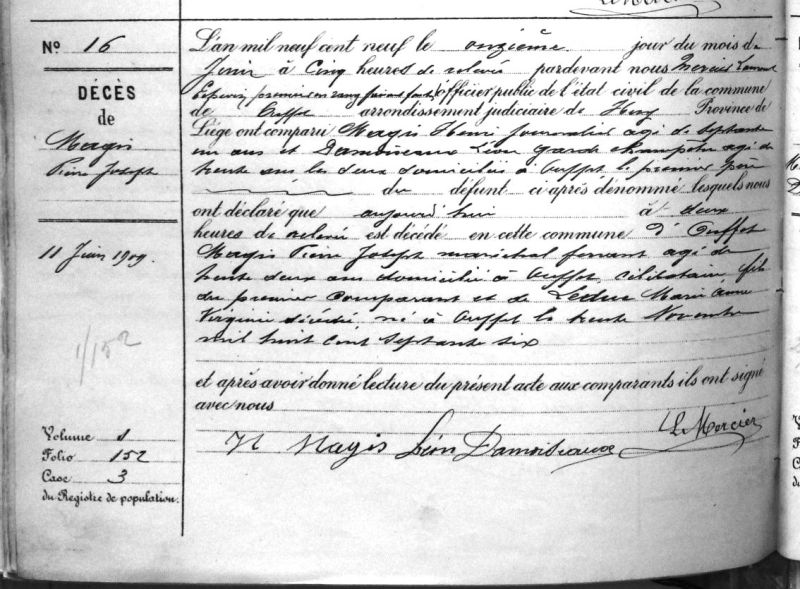 Nº 16
DÉCÈS
de
Magis
Pierre Joseph
11 Juin 1909.
1/152
Volume 1
Folio 152
Case 3
du Registre de population.
L'an mil neuf cent neuf le onzième jour du mois de
Juin à cinq heures de relevée pardevant nous Mercier Laurent
Echevin, premier en rang faisant fonct. d'officier public de l'état civil de la commune
de Ouffet arrondissement judiciaire de Huy Province de
Liége ont comparu Magis Henri journalier agé de septante
un ans et Damoiseaux Léon garde champêtre agé de
trente ans les deux domiciliés à Ouffet le premier père
du défunt ci-après dénommé lesquels nous
ont déclaré que aujourd'hui à deux
heures de relevée est décédé en cette commune d'Ouffet
Magis Pierre Joseph maréchal ferrant agé de
trente deux ans domicilié à Ouffet, célibataire fils
du premier comparant et de Leduc Marie Anne
Virginie décédée, né à Ouffet le trente Novembre
mil huit cent septante six
et après avoir donné lecture du présent acte aux comparants ils ont signé
avec nous
H Magis Léon Damoiseaux L Mercier